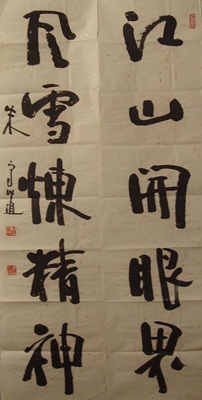 江山開眼界
風雪煉精神